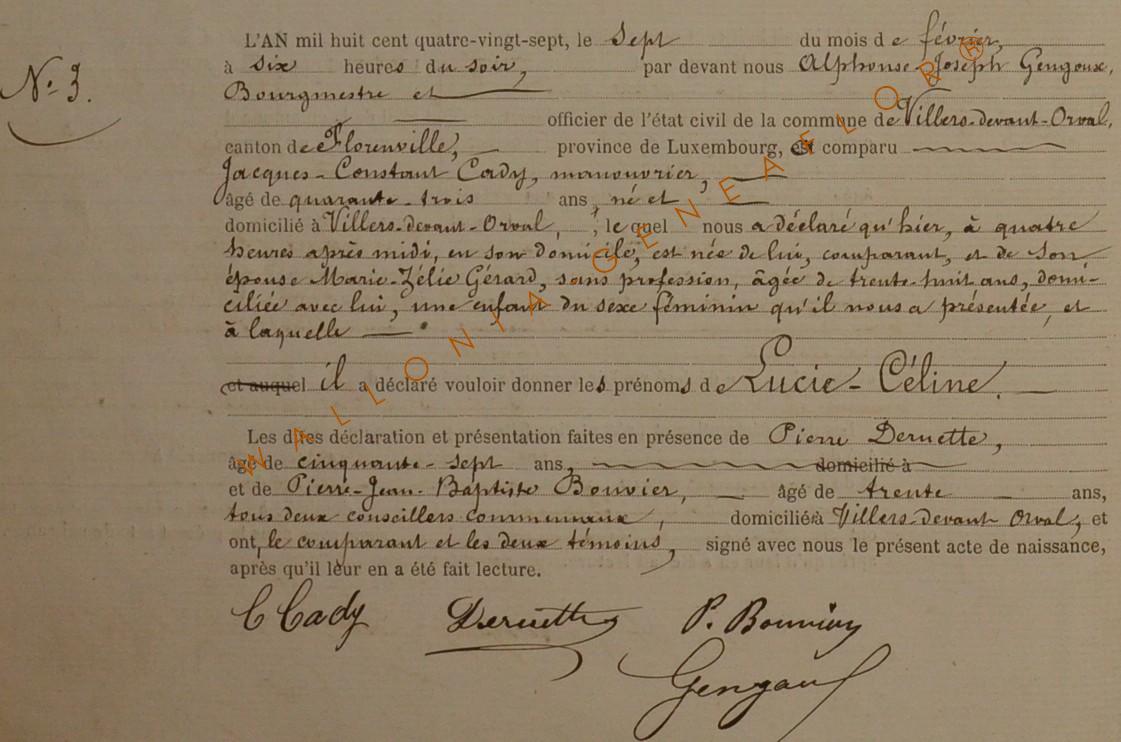 N° 3.
L'AN mil huit cent quatre-vingt-sept, le sept du mois de février,
à six heures du soir, par devant nous Alphonse-Joseph Gengoux,
Bourgmestre et
officier de l'état civil de la commune de Villers-devant-Orval,
canton de Florenville, province de Luxembourg, est comparu
Jacques-Constant Cady, manouvrier,
âgé de quarante-trois ans, né et
domicilié à Villers-devant-Orval, ; lequel nous a déclaré qu'hier, à quatre
heures après midi, en son domicile, est née de lui, comparant, et de son
épouse Marie-Zélie Gérard, sans profession, âgée de trente-huit ans, domi-
ciliée avec lui, une enfant du sexe féminin qu'il nous a présentée, et
à laquelle
et auquel il a déclaré vouloir donner les prénoms de Lucie-Céline.
Les dites déclaration et présentation faites en présence de Pierre Deruette,
âgé de cinquante-sept ans, domicilié à
et de Pierre-Jean-Baptiste Bouvier, âgé de trente ans,
tous deux conseillers communaux, domiciliés à Villers-devant-Orval, et
ont, le comparant et les deux témoins, signé avec nous le présent acte de naissance,
après qu'il leur en a été fait lecture.
C Cady Deruette P. Bouvier
Gengoux
WALLONIA GENEALOR ®